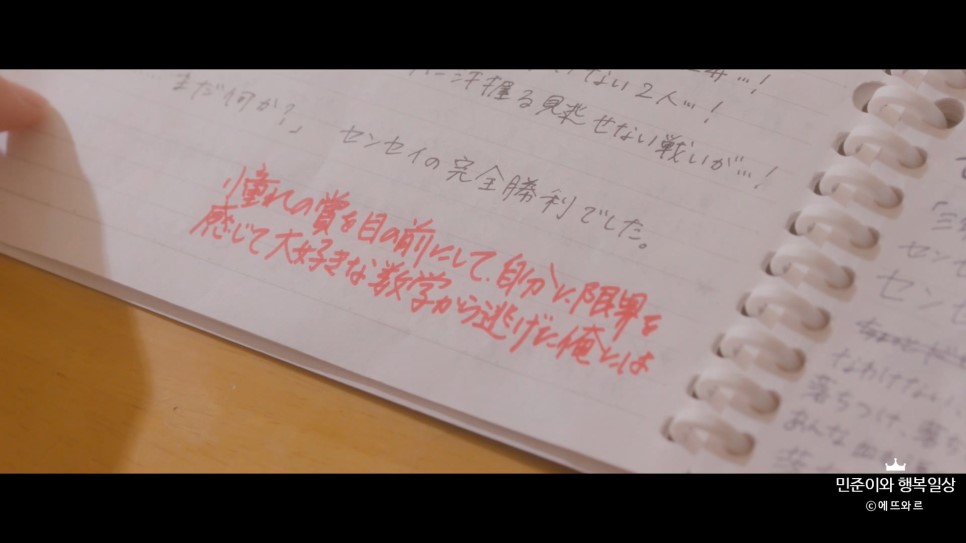 ない2人…!
汗握る見逃せない戦いが…!
まだ何か?」 センセイの完全勝利でした。
憧れの賞を目の前にして、自分に限界を
感じて大好きな数学から逃げた俺には
「三
センセ
センセ
なわけない
落ちつけ、落ち
あんな
민준이와 행복일상
©에뜨와르